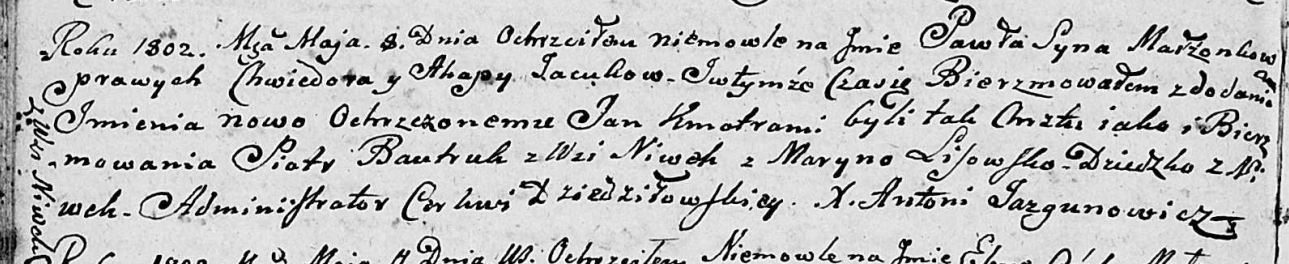 Roku 1802. Mca Maja. 8. Dnia Ochrzciłem niemowle na Jmie Pawła Syna Małżonkow
prawych Chwiedora y Ahapy Jacukow - Jwtymże Czasie Bierzmowałem z dodaniem
Jmienia nowo Ochrzczonemu Jan Kmotrami byli tak Chrztu iako i Bierz
mowania Piotr Bautruk z Wsi Niwek z Maryno Lisowsko - Dziedzko z Ni
wek - Administrator Cerkwi Dziedziłowskiey. X. Antoni Jazgunowicz
z Wsi Niwek
Maja Dnia Ochrzciłem Niemowle na Jmie